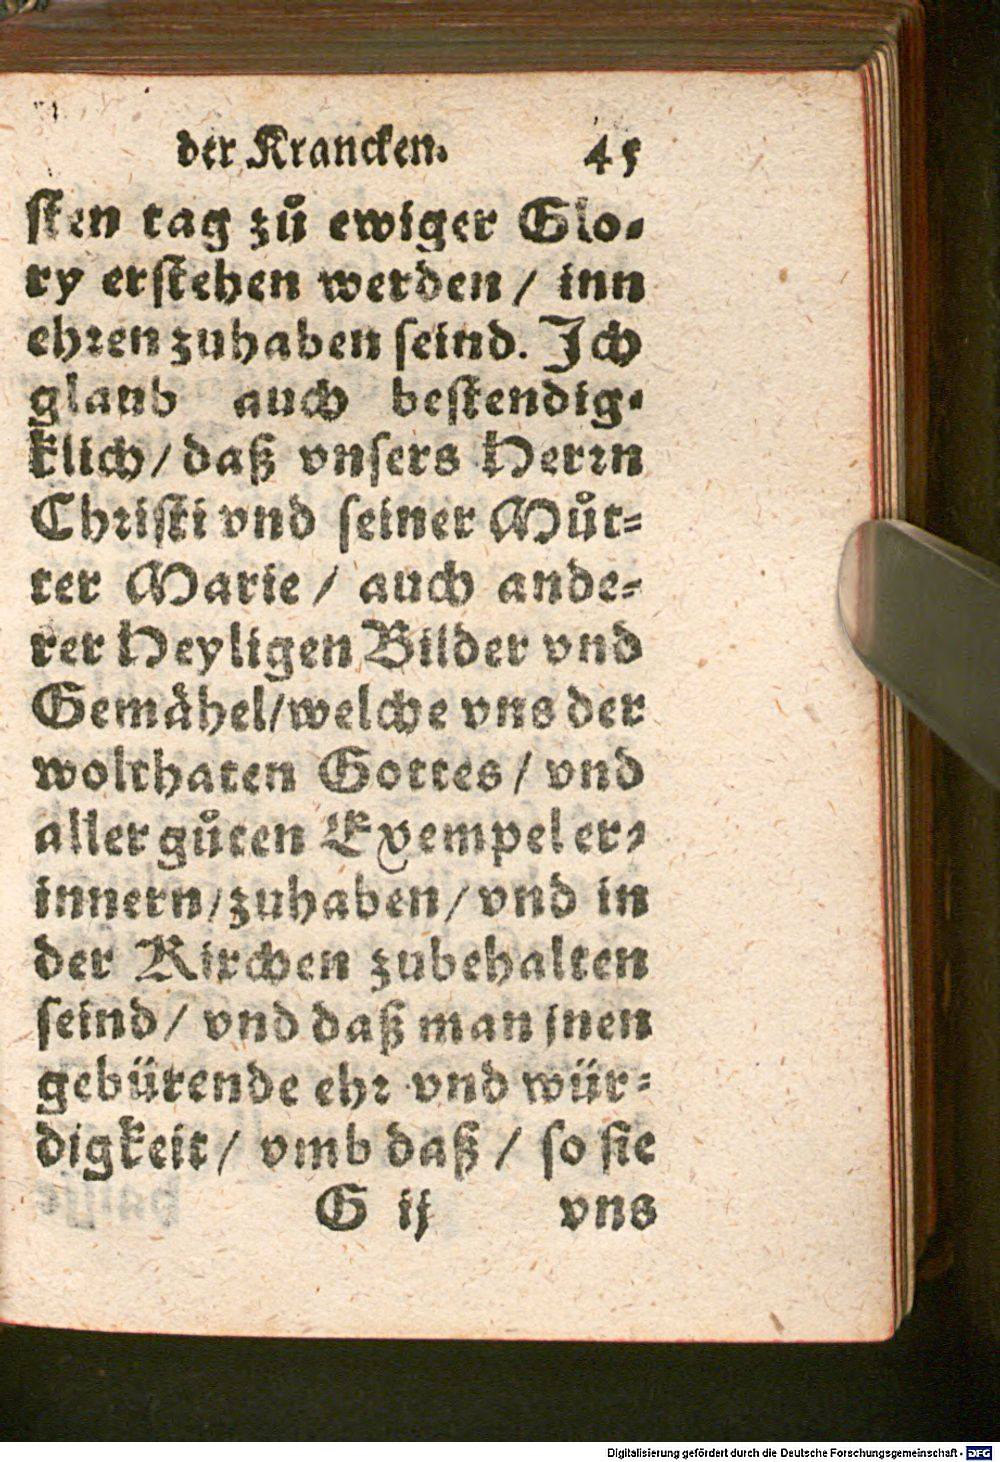 der Krancken. 45
sten tag zů ewiger Glo-
ry erstehen werden / inn
ehren zuhaben seind. Ich
glaub auch bestendig-
klich / daß vnsers Herrn
Christi vnd seiner Můt-
ter Marie / auch ande-
rer Heyligen Bilder vnd
Gemåhel / welche vns der
wolthaten Gottes / vnd
aller gůten Exempel er-
innern / zuhaben / vnd in
der Kirchen zubehalten
seind / vnd daß man jnen
gebürende ehr vnd wür-
digkeit / vmb daß / so sie
G ij vns
Digitalisierung gefördert durch die Deutsche Forschungsgemeinschaft - DFG